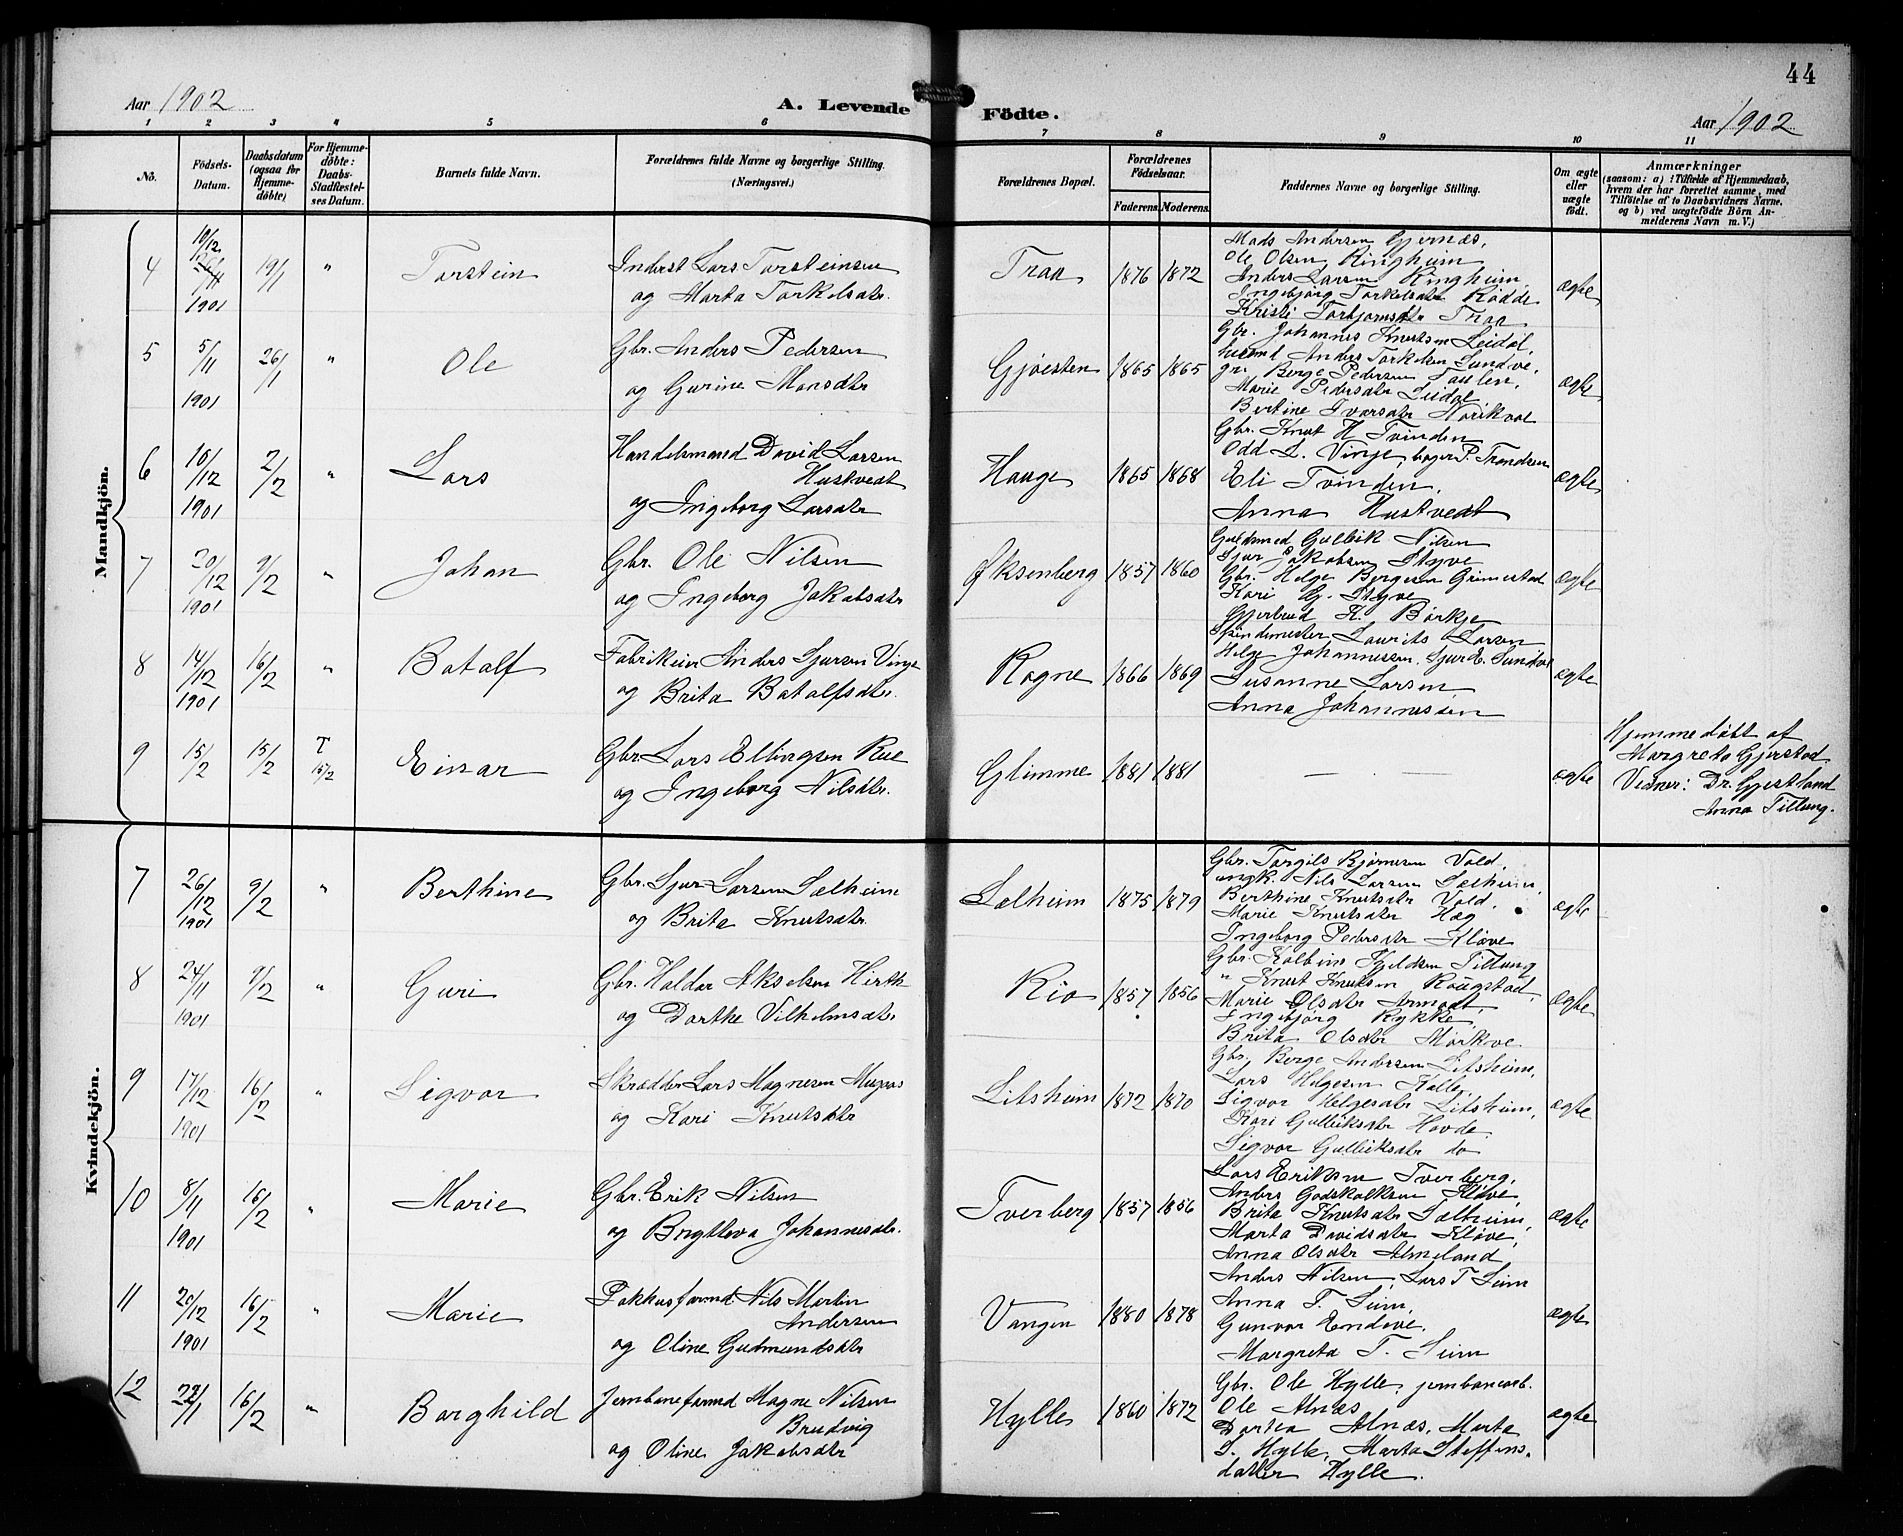 44
Aar 1902
A. Levende
Födte.
Aar 1902
1 2 3 4 5 6 7 8 9 10 11
No.
Födsels-
Datum.
Daabsdatum
(ogsaa for
Hjemme-
döbte)
For Hjemme-
døbte:
Daabs-
Stadfæstel-
ses Datum.
Barnets fulde Navn.
Forældrenes fulde Navne og borgerlige Stilling.
(Næringsvei.)
Forældrenes Bopæl.
Forældrenes
Födselsaar.
Faderens. Moderens.
Faddernes Navne og borgerlige Stilling.
Om ægte
eller
uægte
födt.
Anmærkninger
(saasom: a) i Tilfælde af Hjemmedaab,
hvem der har forrettet samme, med
Tilföielse af to Daabsvidners Navne.
og b) ved uægtefödte Börn An-
melderens Navn m. V.)
Mandkjön.
4 10/12 1901 19/1 " Torstein
Inderst Lars Torsteinsen
og Marta Torkelsdtr.
Traa 1876 1872
Mads Andersen Gjernæs,
Ole Olsen Ringheim
Anders Larsen Ringheim,
Ingebjörg Torkelsdtr Rödde
Kristi Torbjornsdtr Traa
ægte
5 5/11 1901 26/1 " Ole
Gbr. Anders Pedersen
og Gurine Monsdtr
Gjøesten 1865 1865
Gbr. Johannes Knutsen Leidal,
Anders Torkelsen Sundve,
Berge Pedersen
Marie Pedersdtr Leidal
Bertine Ivarsdtr
ægte
6 16/12 1901 2/2 " Lars
Handelsmand David Larsen
Hustvedt
og Ingeborg Larsdtr
Hauge 1865 1868
Gbr. Knut H Tvinden
Odd L. Vinje, bager P. Trondsen
Eli Tvinden,
Anna Hustvedt
ægte
7 20/12 1901 9/2 " Johan
Gbr. Ole Nilsen
og Ingeborg Jakobsdtr
Øksenberg 1857 1860
Guldsmed Gulleik Nilsen
Sjur Jakobsen Styve
Gbr. Helge Bergesen Grimestad
Kari G. Styve
Gjertrud K. Börkje
ægte
8 14/12 1901 16/2 " Botolf
Fabrikeier Anders Sjursen Vinje
og Brita Botolfsdtr.
Rogne 1866 1869
Spindemester Laurits Larsen
Helge Johannessen, Sjur E. Sundve
Susanne Larsen
Anna Johannessen
ægte
9 15/2 15/2 T 15/2 Einar
Gbr. Lars Ellingsen Rue
og Ingeborg Nilsdtr.
Glimme 1881 1881
— —
ægte
Hjemmedöbt af
Margreta Gjerstad
Vidner: Dr. Gjestland
Anna Tillung.
Kvindekjön.
7 26/12 1901 9/2 " Berthine
Gbr. Sjur Larsen Sælheim
og Brita Knutsdtr
Sælheim 1875 1879
Gbr. Torgils Bjørnesen Vold,
ungk. Nils Larsen Sælheim,
Berthine Knutsdtr Vold.
Marie Knutsdtr Hæg
Ingeborg Pedersdtr Kløve
ægte
8 24/11 1901 9/2 " Guri
Gbr. Haldor Akselsen Hirth
og Dorthe Vilhelmsdtr
Rio 1857 1856
Gbr. Kolbein Kjeldsen Tillung
" Knut Knutsen Rougstad,
Marie Olsdtr Armodt,
Ingebjörg Rykke,
Brita Olsdtr Mörkve
ægte
9 17/12 1901 16/2 " Sigvor
Skrædder Lars Magnesen
og Kari Knutsdtr
Litsheim 1872 1870
Gbr. Berge Andersen Litsheim,
Lars Helgesen
Sigvor Helgesdtr Litsheim,
Kari Gulleiksdtr Hovde.
Sigvor Gulleiksdtr do
ægte
10 8/11 1901 16/2 " Marie
Gbr. Erik Nilsen
og Brytteva Johannesdtr.
Tverberg 1857 1856
Lars Eriksen Tverberg,
Anders Godskalksen Kløve,
Brita Knutsdtr Sælheim,
Marta Davidsdtr Kløve,
Anna Olsdtr Almeland
ægte
11 20/12 1901 16/2 " Marie
Pakhusformd Nils Martin
Andersen
og Oline Gudmundsdtr
Vangen 1880 1878
Anders Nilsen, Lars T Seim
Anna T. Seim,
Gunvor Endeve,
Margreta T. Seim
ægte
12 22/1 16/2 " Borghild
Jernbaneformd Magne Nilsen
Brudvig
og Oline Jakobsdtr
Hylle 1860 1872
Gbr. Ole Hylle, jernbanearb.
Ole Alnæs
Dortea Alnæs, Marta
S. Hylle, Marta Steffens-
datter Hylle.
ægte